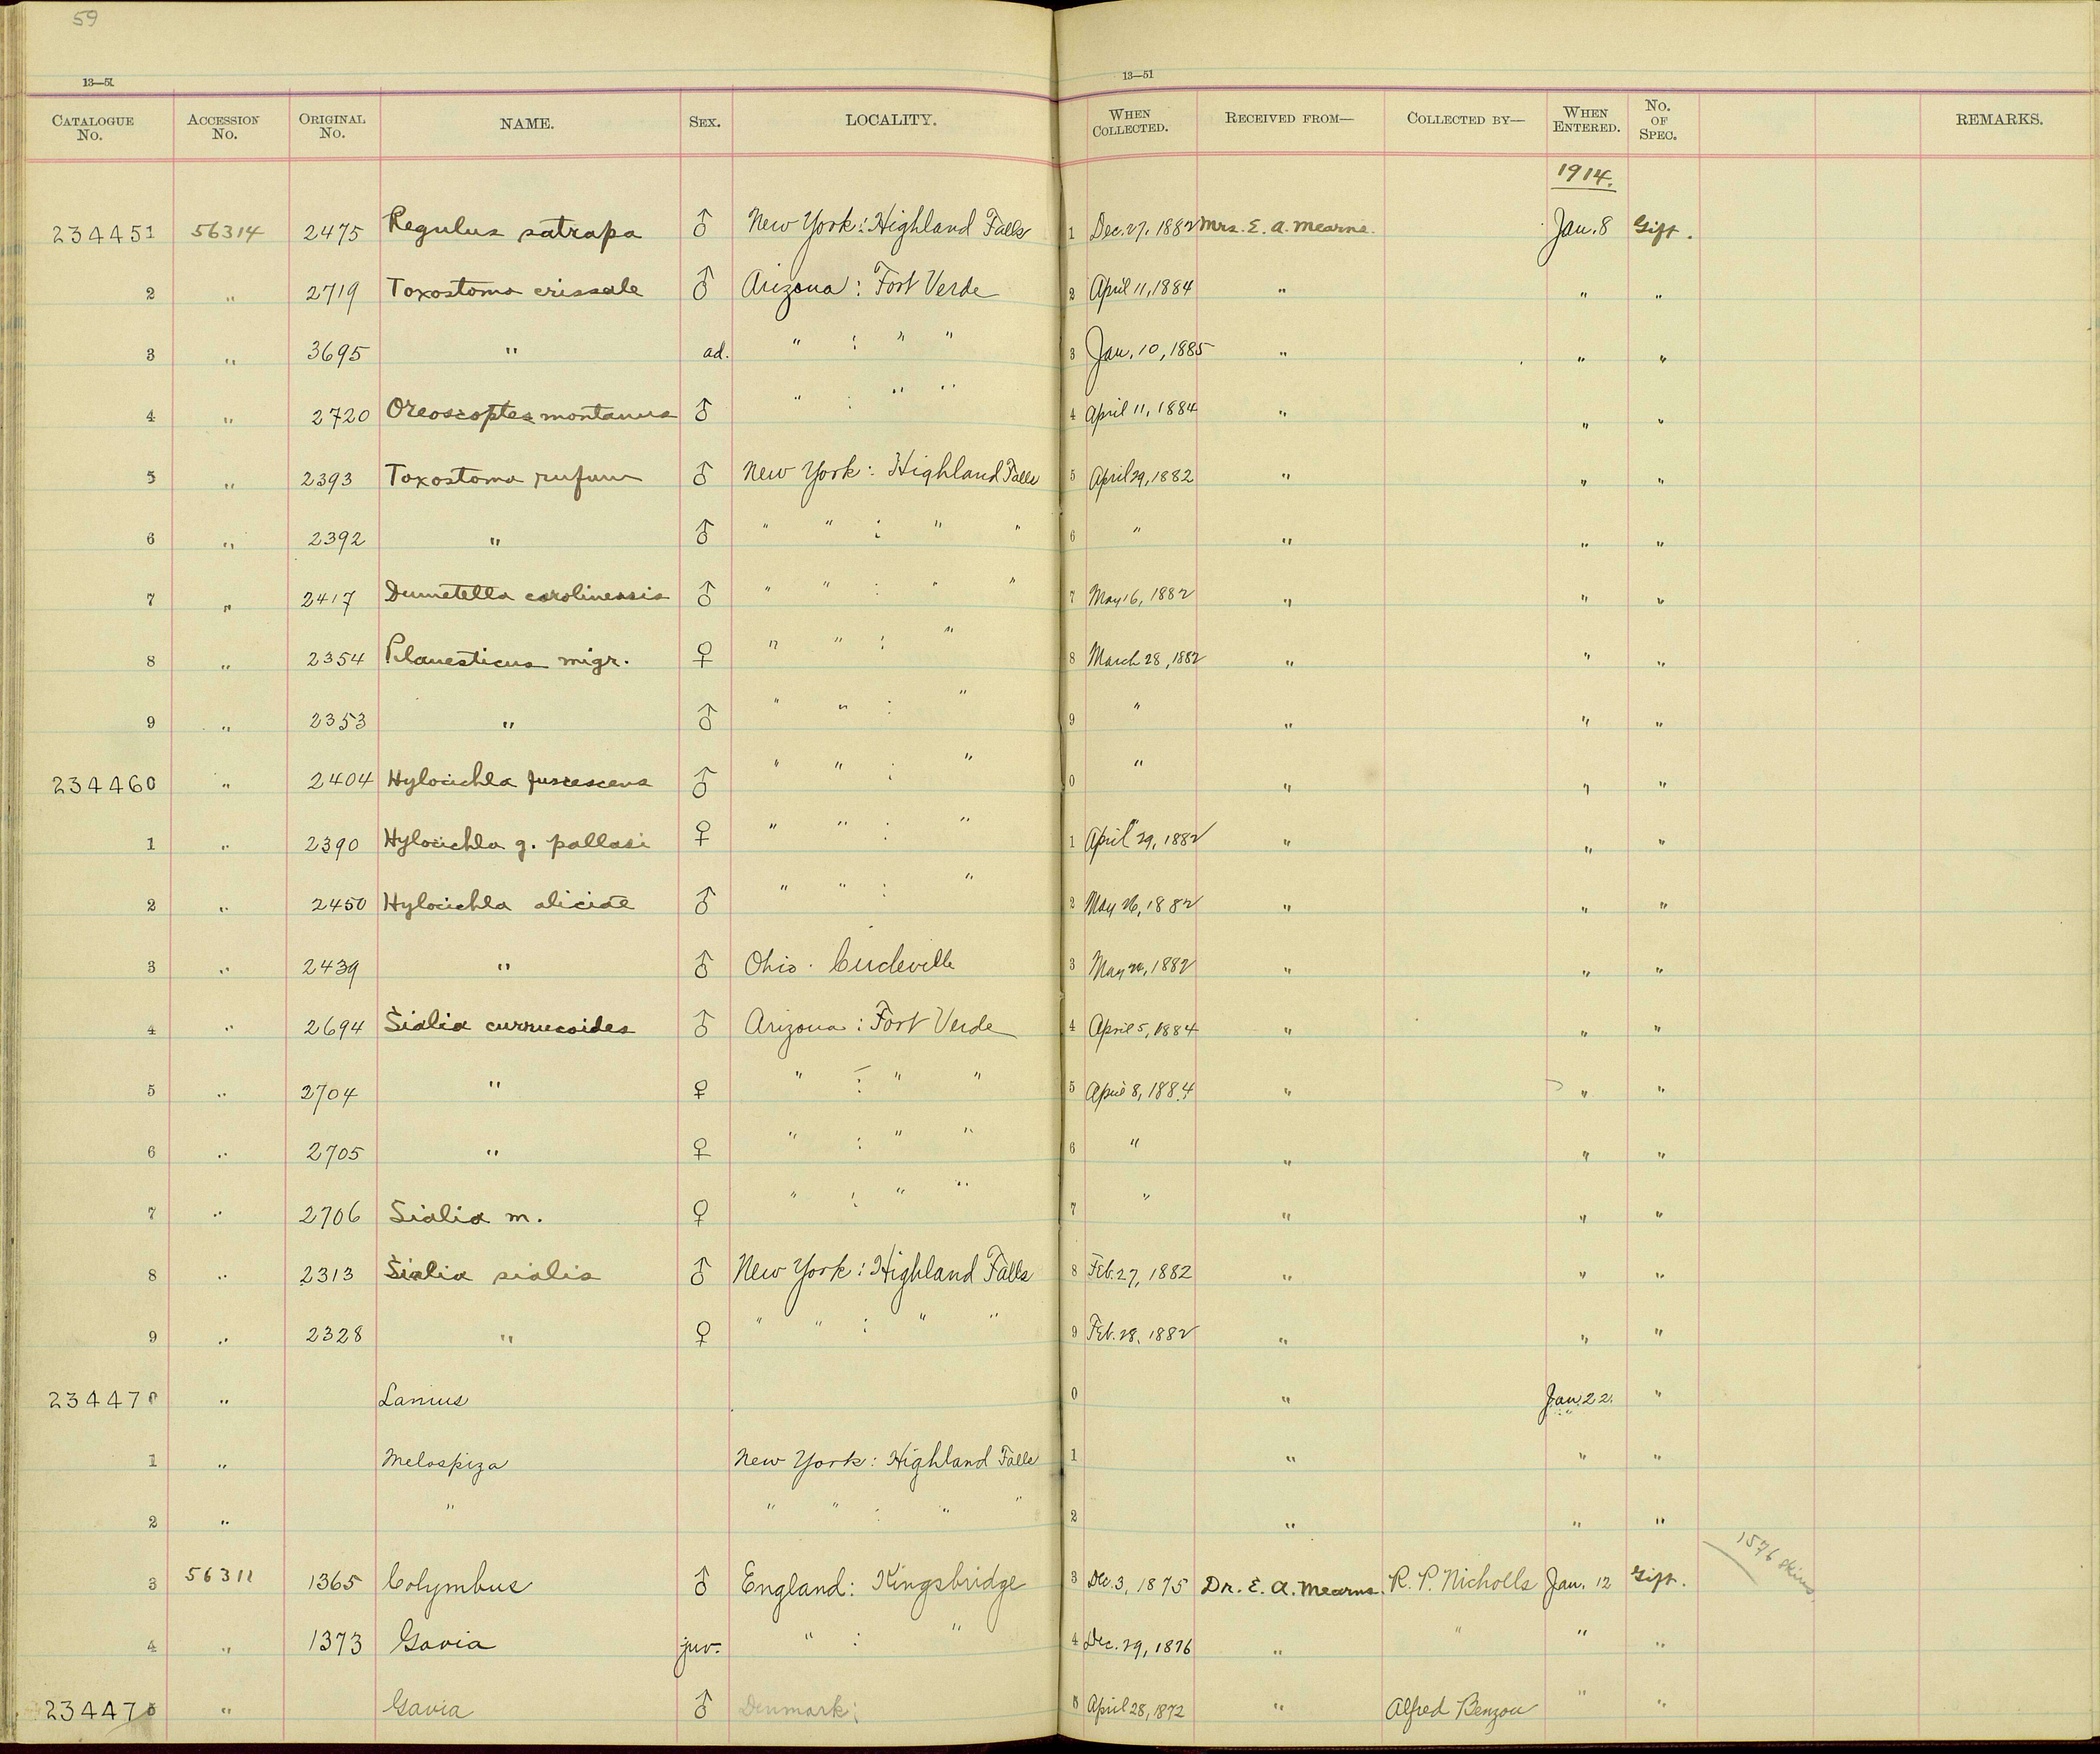 59
13—51 13—51
CATALOGUE No. ACCESSION No. ORIGINAL No. NAME. SEX. LOCALITY. WHEN COLLECTED. RECEIVED FROM— COLLECTED BY— WHEN ENTERED. No. OF SPEC. REMARKS.
1914.
234451 56314 2475 Regulus satrapa ♂ New York: Highland Falls 1 Dec. 27, 1882 Mrs. E. A. Mearns. Jan. 8 Gift.
2 " 2719 Toxostoma crissale ♂ Arizona: Fort Verde 2 April 11, 1884 " " "
3 " 3695 " ad. " : " " 3 Jan. 10, 1885 " " "
4 " 2720 Oreoscoptes montanus ♂ " : " " 4 April 11, 1884 " " "
5 " 2393 Toxostoma rufum ♂ New York: Highland Falls 5 April 29, 1882 " " "
6 " 2392 " ♂ " " : " " 6 " " " "
7 " 2417 Dumetella carolinensis ♂ " " : " " 7 May 16, 1882 " " "
8 " 2354 Planesticus migr. ♀ " " : " 8 March 28, 1882 " " "
9 " 2353 " ♂ " " : " 9 " " " "
234460 " 2404 Hylocichla fuscescens ♂ " " : " 0 " " " "
1 " 2390 Hylocichla g. pallasi ♀ " " : " 1 April 29, 1882 " " "
2 " 2450 Hylocichla aliciae ♂ " " : " 2 May 26, 1882 " " "
3 " 2439 " ♂ Ohio. Circleville 3 May 1882 " " "
4 " 2694 Sialia currucoides ♂ Arizona: Fort Verde 4 April 5, 1884 " " "
5 " 2704 " ♀ " : " " 5 April 8, 1884 " " "
6 " 2705 " ♀ " : " " 6 " " " "
7 " 2706 Sialia m. ♀ " : " " 7 " " " "
8 " 2313 Sialia sialis ♂ New York: Highland Falls 8 Feb. 27, 1882 " " "
9 " 2328 " ♀ " " : " " 9 Feb. 28, 1882 " " "
234470 " Lanius 0 " Jan. 22. "
1 " Melospiza New York: Highland Falls 1 " " "
2 " " " " : " " 2 " " "
1576 skins
3 56311 1365 Colymbus ♂ England: Kingsbridge 3 Dec. 3, 1875 Dr. E. A. Mearns. R. P. Nicholls Jan. 12 Gift.
4 " 1373 Gavia juv. " : " 4 Dec. 29, 1876 " " " "
234475 " Gavia ♂ Denmark: 5 April 28, 1872 " Alfred Benzon " "